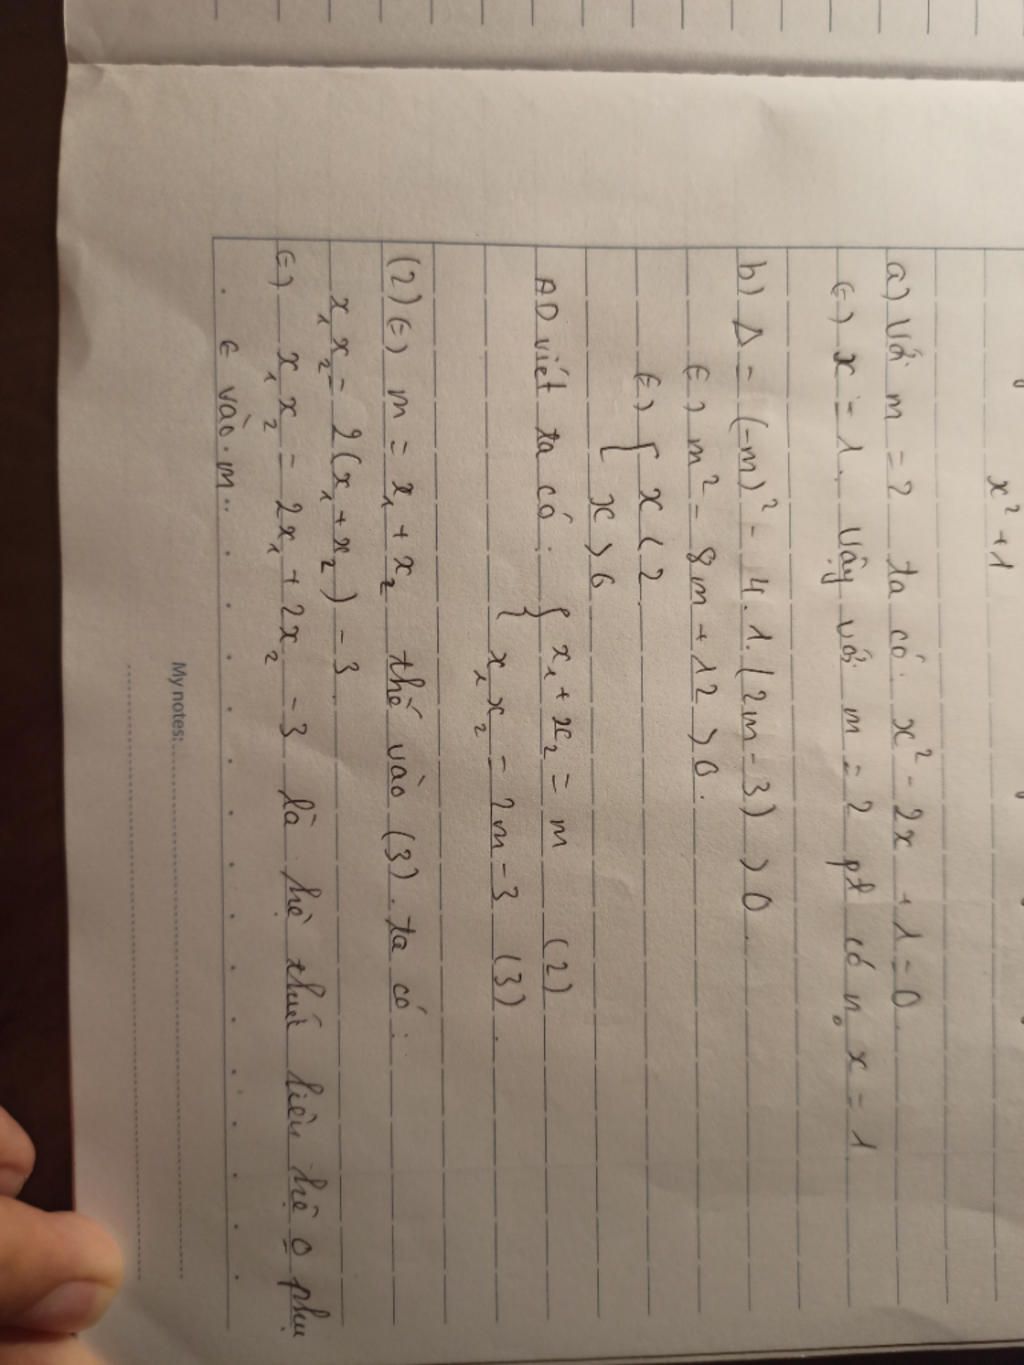 x² + 1
a) Với m = 2 ta có: x² - 2x + 1 = 0
(=) x = 1. Vậy với m = 2 pt có n₀ x = 1
b) Δ = (-m)² - 4.1.(2m - 3) > 0.
(=) m² - 8m + 12 > 0.
(=) { x < 2
{ x > 6
AD viét ta có: { x₁ + x₂ = m (2)
{ x₁ x₂ = 2m - 3 (3).
(2) (=) m = x₁ + x₂ thế vào (3). ta có:
x₁ x₂ = 2(x₁ + x₂) - 3
(=) x₁ x₂ = 2x₁ + 2x₂ - 3 là hệ thức liên hệ 0 phụ
vào m.
My notes: